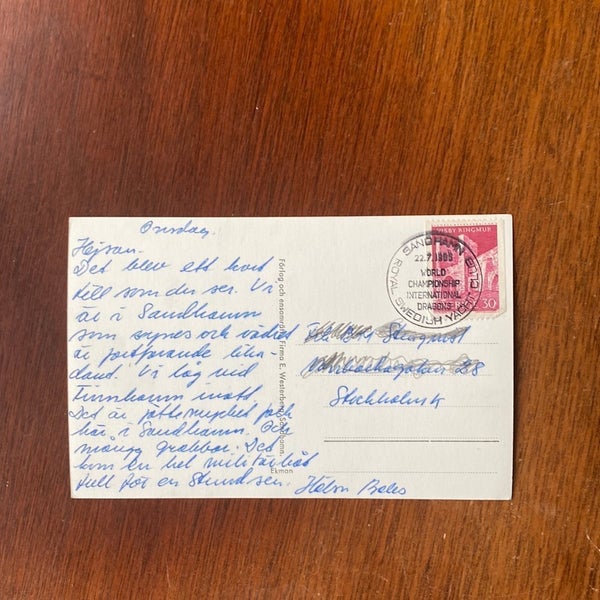 Onsdag.
Hejsan.
Det blev ett kort
till som du ser. Vi
är i Sandhamn
som synes och vädret
är fortfarande
Vi låg vid
Finnhamn inatt.
Det är jättemycket folk
här i Sandhamn. Och
många grabbar. Det
kom en hel militärbåt
full för en stund sen.
Förlag och ensamrätt: Firma E. Westerberg, Sandhamn.
Ekman
VISBY RINGMUR
30
SANDHAMN
22.7.1965
WORLD
CHAMPIONSHIP
INTERNATIONAL
DRAGONS
ROYAL SWEDISH YACHT CLUB
28
Stockholm